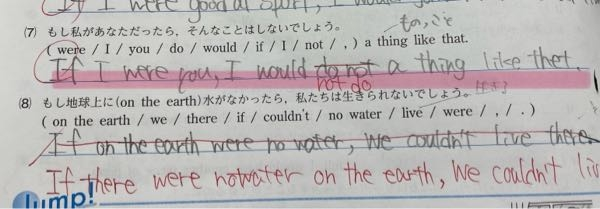 If I were good at sport, I would
(7) もし私があなただったら，そんなことはしないでしょう。 もの,こと
( were / I / you / do / would / if / I / not / , ) a thing like that.
If I were you, I would do not a thing like thet.
not do
(8) もし地球上に(on the earth)水がなかったら，私たちは生きられないでしょう。
( on the earth / we / there / if / couldn't / no water / live / were / , / . )
If on the earth were no water, We couldn't live there.
If there were nowater on the earth, We couldn't liv
Jump!